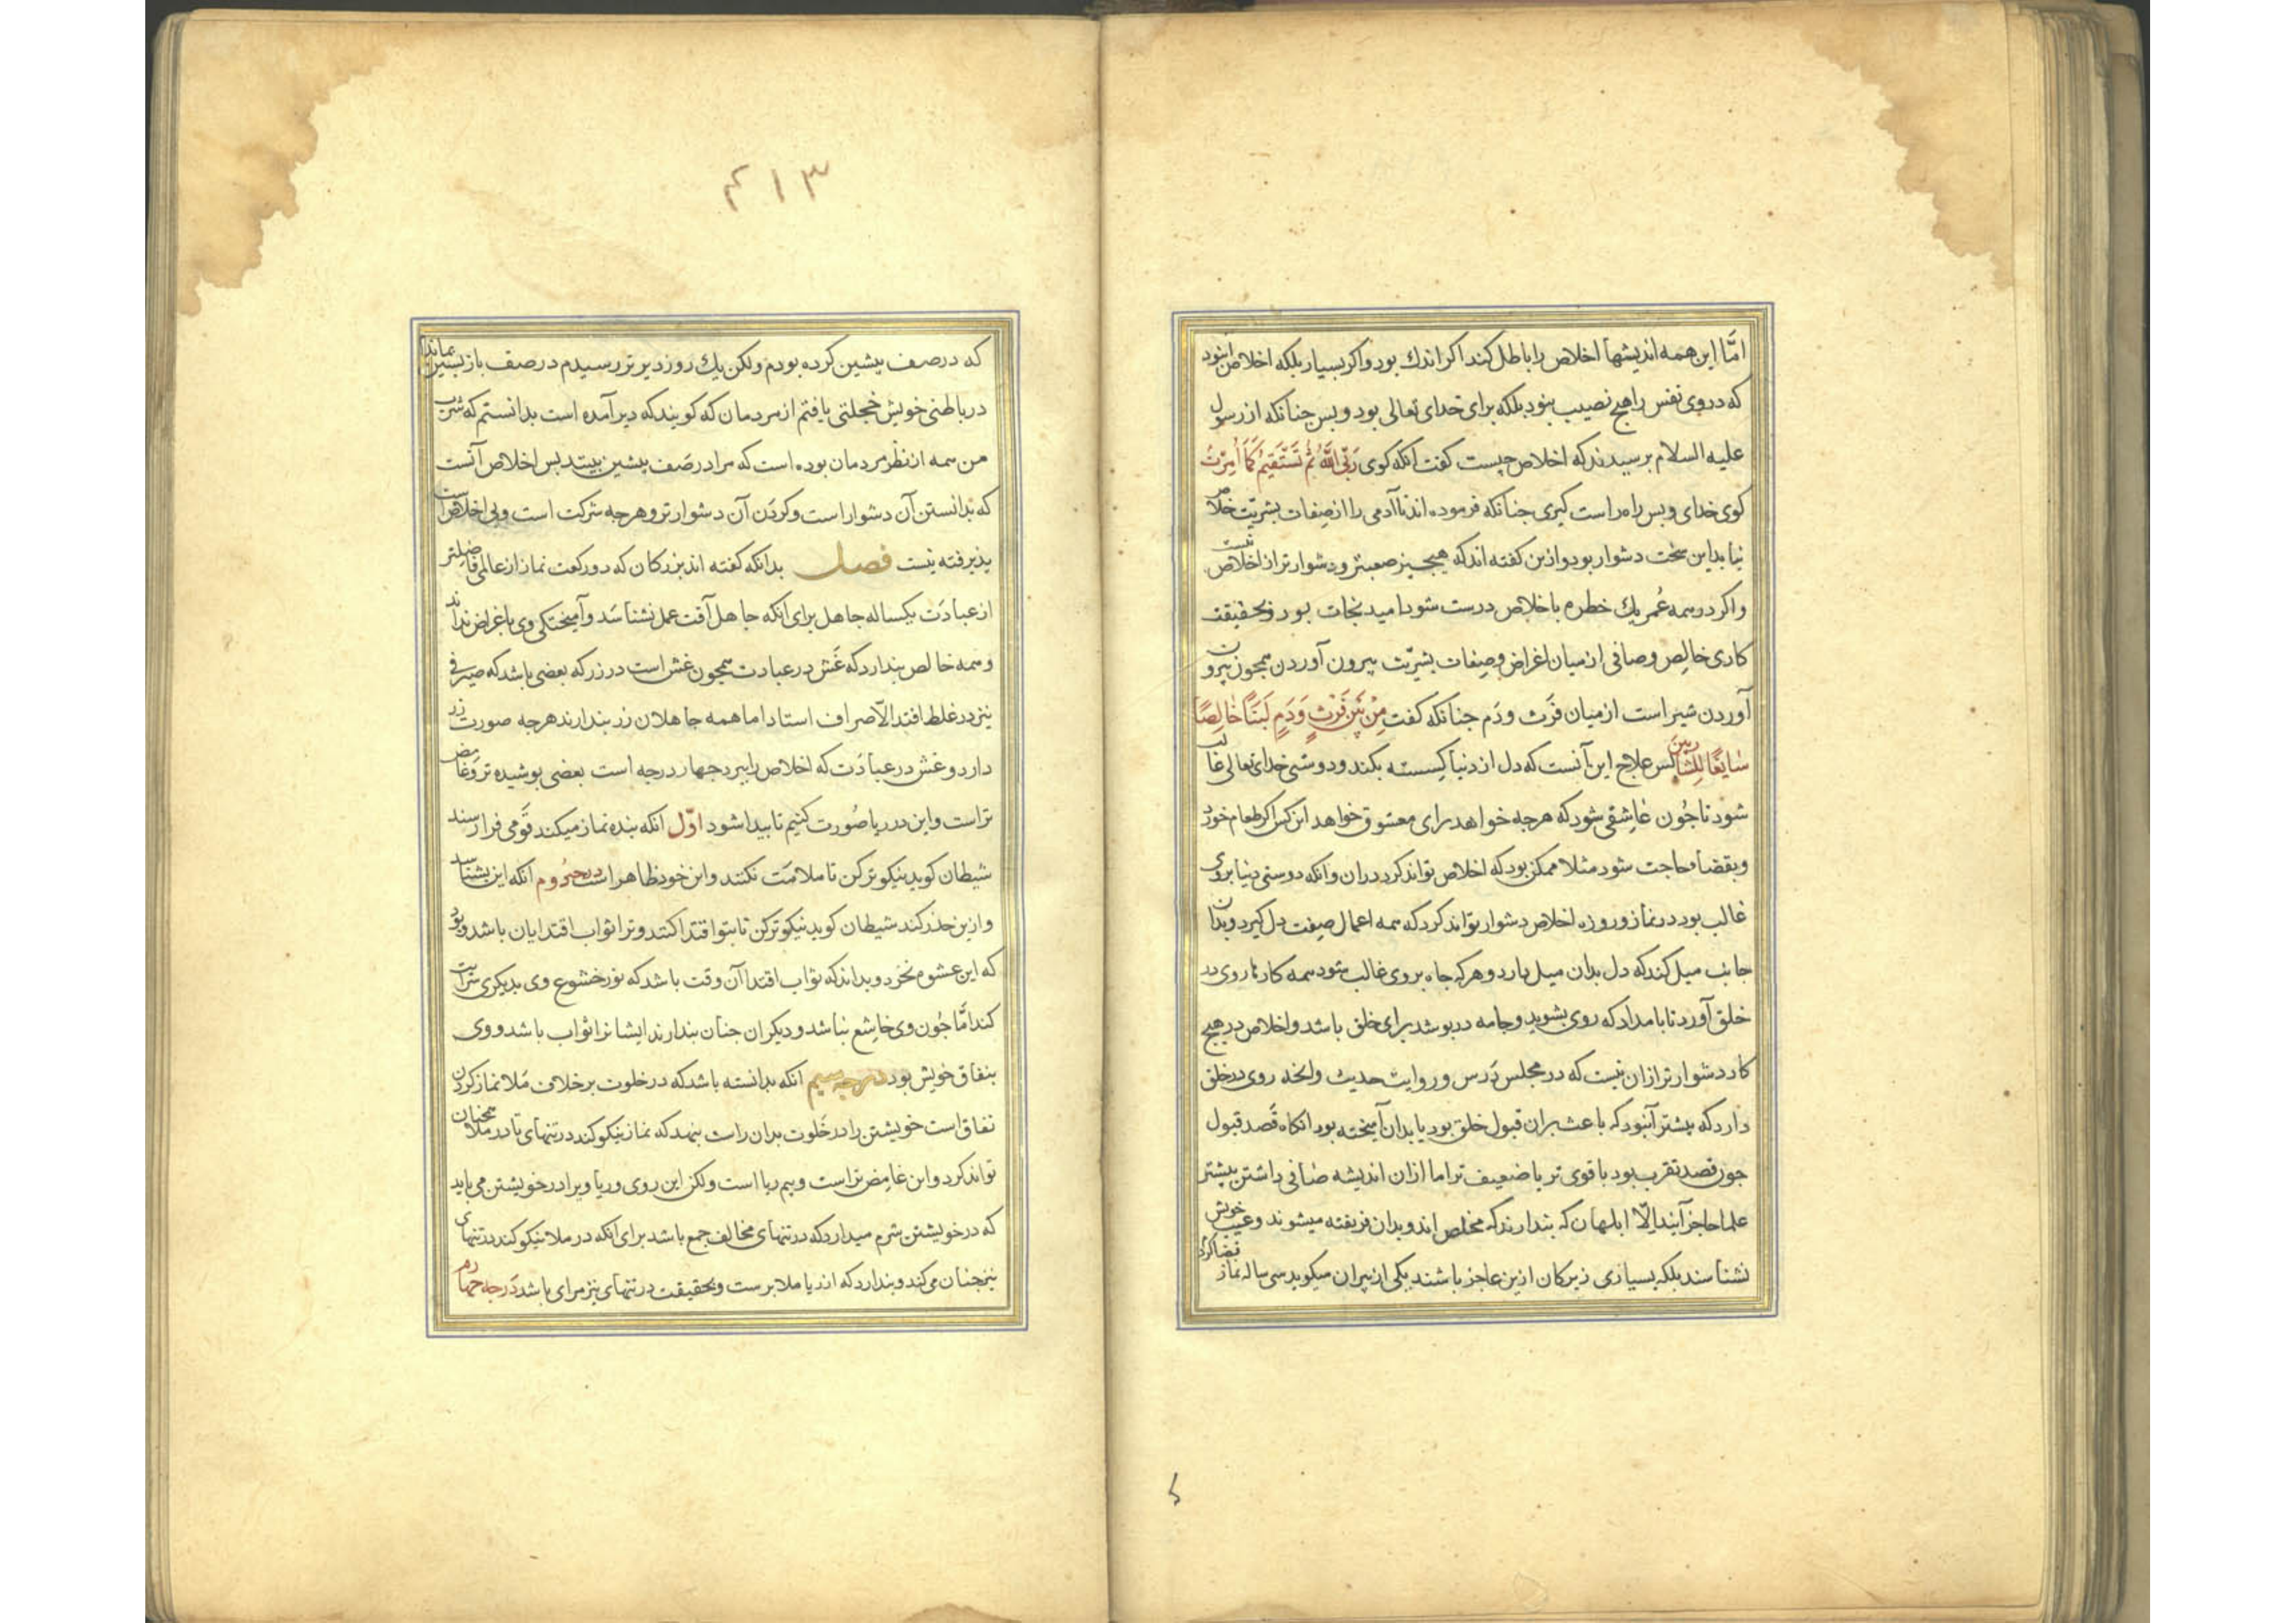 امّا این همه اندیشها اخلاص را باطل کند اکر اندك بود و اکر بسیار بلکه اخلاص ان بود
که در وی نفس را هیچ نصیب نبود بلکه برای خدای تعالی بود و بس جنانکه از رسول
علیه السلام برسیدند که اخلاص چیست کفت انکه کوی رَبّیَ اللهُ ثُمَّ تَسْتَقیمُ کَمَا اُمِرْتَ
کوی خدای و بس راه راست کیری جنانکه فرموده اند تا آدمی را از صفات بشریّت خلاص
نیابد این سخت دشوار بود و ازین کفته اند که هیچ چیز صعبتر و دشوارتر از اخلاص نیست
و اکر در همه عُمر یك خطره باخلاص درست شود امید نجات بود و بحقیقت
کاری خالِص و صافی از میان اغراض و صِفات بشریّت بیرون آوردن همجون بیرون
آوردن شیر است از میان فَرث و دَم جنانکه کفت مِنْ بَیْنِ فَرْثٍ وَدَمٍ لَبَنًا خَالِصًا
سَایغًا لِلشَّاربینَ بس علاج این آنست که دل از دنیا کسسته بکند و دوستی خدای تعالی غالب
شود تا جُون عاشقی شود که هرجه خواهد برای معشوق خواهد این کس اکر طعام خورد
و بقضاء حاجت شود مثلا ممکن بود که اخلاص تواند کرد دران و انکه دوستی دنیا بروی
غالب بود در نماز و روزه اخلاص دشوار تواند کرد که همه اعمال صِفت دل کیرد و بدان
جانب میل کند که دل بدان میل دارد و هرکه جاه بر وی غالب شود همه کارها روی در
خلق آورد تا بامداد که روی بشوید و جامه دربوشد برای خلق باشد و اخلاص در هیچ
کار دشوارتر ازان نیست که در مجلس دَرس و روایت حدیث و انجه روی در خلق
دارد که بیشتر آنبود که باعث بران قبول خلق بود یا بدان آمیخته بود انکاه قَصد قبول
جون قصد تقرب بود یا قوی تر یا ضعیف تر اما ازان اندیشه صافی داشتن بیشتر
علما عاجز آیند الّا ابلهان که بندارند که مخلص اند و بدان فریفته میشوند و عیب خویش
نشناسند بلکه بسیاری زیرکان ازین عاجز باشند یکی از بیران میکوید سی ساله نماز قضا کردم
۴۱۳
که در صف بیشین کرده بودم ولکن یك روز دیرتر رسیدم در صف بازبسین بماندم
در باطن خویش خجلتی یافتم از مردمان که کویند که دیر آمده است بدانستم که شرب
من همه از نظر مردمان بوده است که مرا در صَف بیشین بینند بس اخلاص آنست
که بدانستن آن دشوار است و کردن آن دشوارتر و هرجه شرکت است و بی اخلاص است
بذیرفته نیست فصل بدانکه کفته اند بزرکان که دو رکعت نماز از عالمی فاضلتر
از عبادَت یکساله جاهل برای انکه جاهل آفت عمل نشناسَد و آمیختکی وی باغراض نداند
و همه خالص بندارد که غَش در عبادت همجون غش است در زر که بعضی باشد که صیرفی
نیز در غلط افتد الّا صراف استاد اما همه جاهلان زر بندارند هرجه صورت زر
دارد و غش در عبادَت که اخلاص را ببرد جهار درجه است بعضی بوشیده تر و غامض
تر است و این در ریا صُورت کنیم تا بیدا شود اوّل انکه بنده نماز میکند قَومی فرا رسند
شیطان کوید نیکوتر کن تا ملامَت نکنند و این خود ظاهر است درجۀ دُوم انکه این بشناسد
و ازین حذر کند شیطان کوید نیکوتر کن تا بتو اقتدا کنند و ترا ثواب اقتدا ایان باشد و بود
که این عشوه بخرد و بداند که ثواب اقتدا آن وقت باشد که نور خشوع وی بدیکری سرایت
کند امّا جُون وی خاشِع نباشد و دیکران جنان بندارند ایشانرا ثواب باشد و وی
بنفاق خویش بود درجه سیم انکه بدانسته باشد که در خلوت برخلاف مَلا نماز کردن
نفاق است خویشتن را در خَلوت بدان راست بنهد که نماز نیکو کند در تنهای تا در ملا همجنان
تواند کرد و این غامِض تر است و هم ریا است ولکن این روی و ریا ویرا در خویشتن می باید
که در خویشتن شرم میدارد که در تنهای مخالف جمع باشد برای انکه در ملا نیکو کند در تنهای
نیز جنان می کند و بندارد که از ریا ملا برست و بحقیقت در تنهای نیز مرای باشد دَرجه جهارم